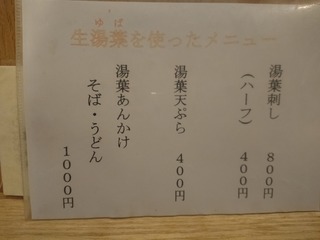 ゆば
生湯葉を使ったメニュー
湯葉刺し 800円
(ハーフ) 400円
湯葉天ぷら 400円
湯葉あんかけ
そば・うどん 1000円